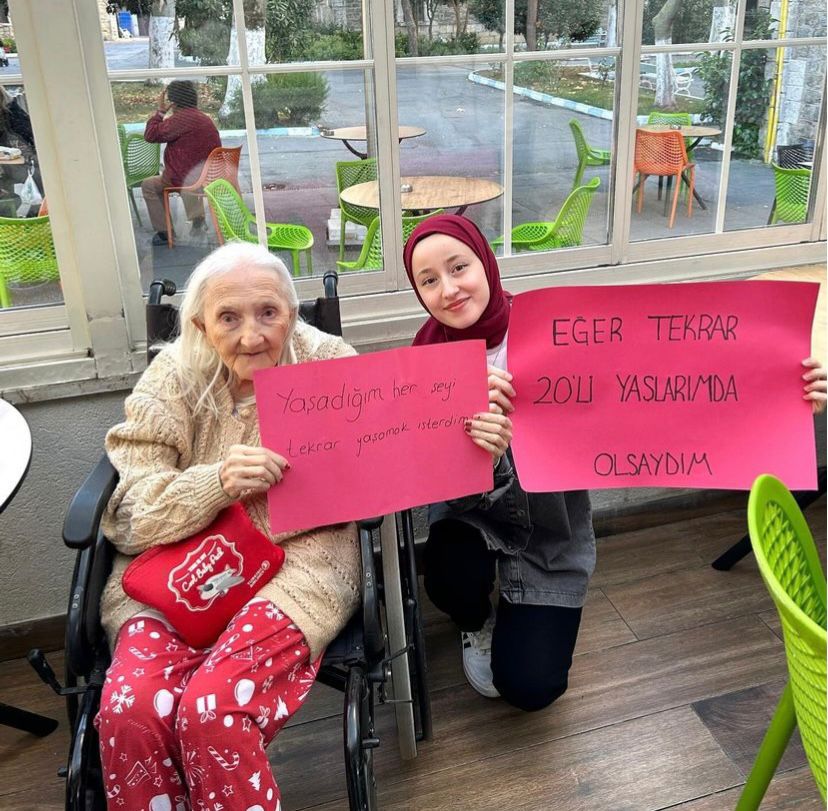 EĞER TEKRAR
20'Lİ YAŞLARIMDA
OLSAYDIM
Yaşadığım her şeyi
tekrar yaşamak isterdim.